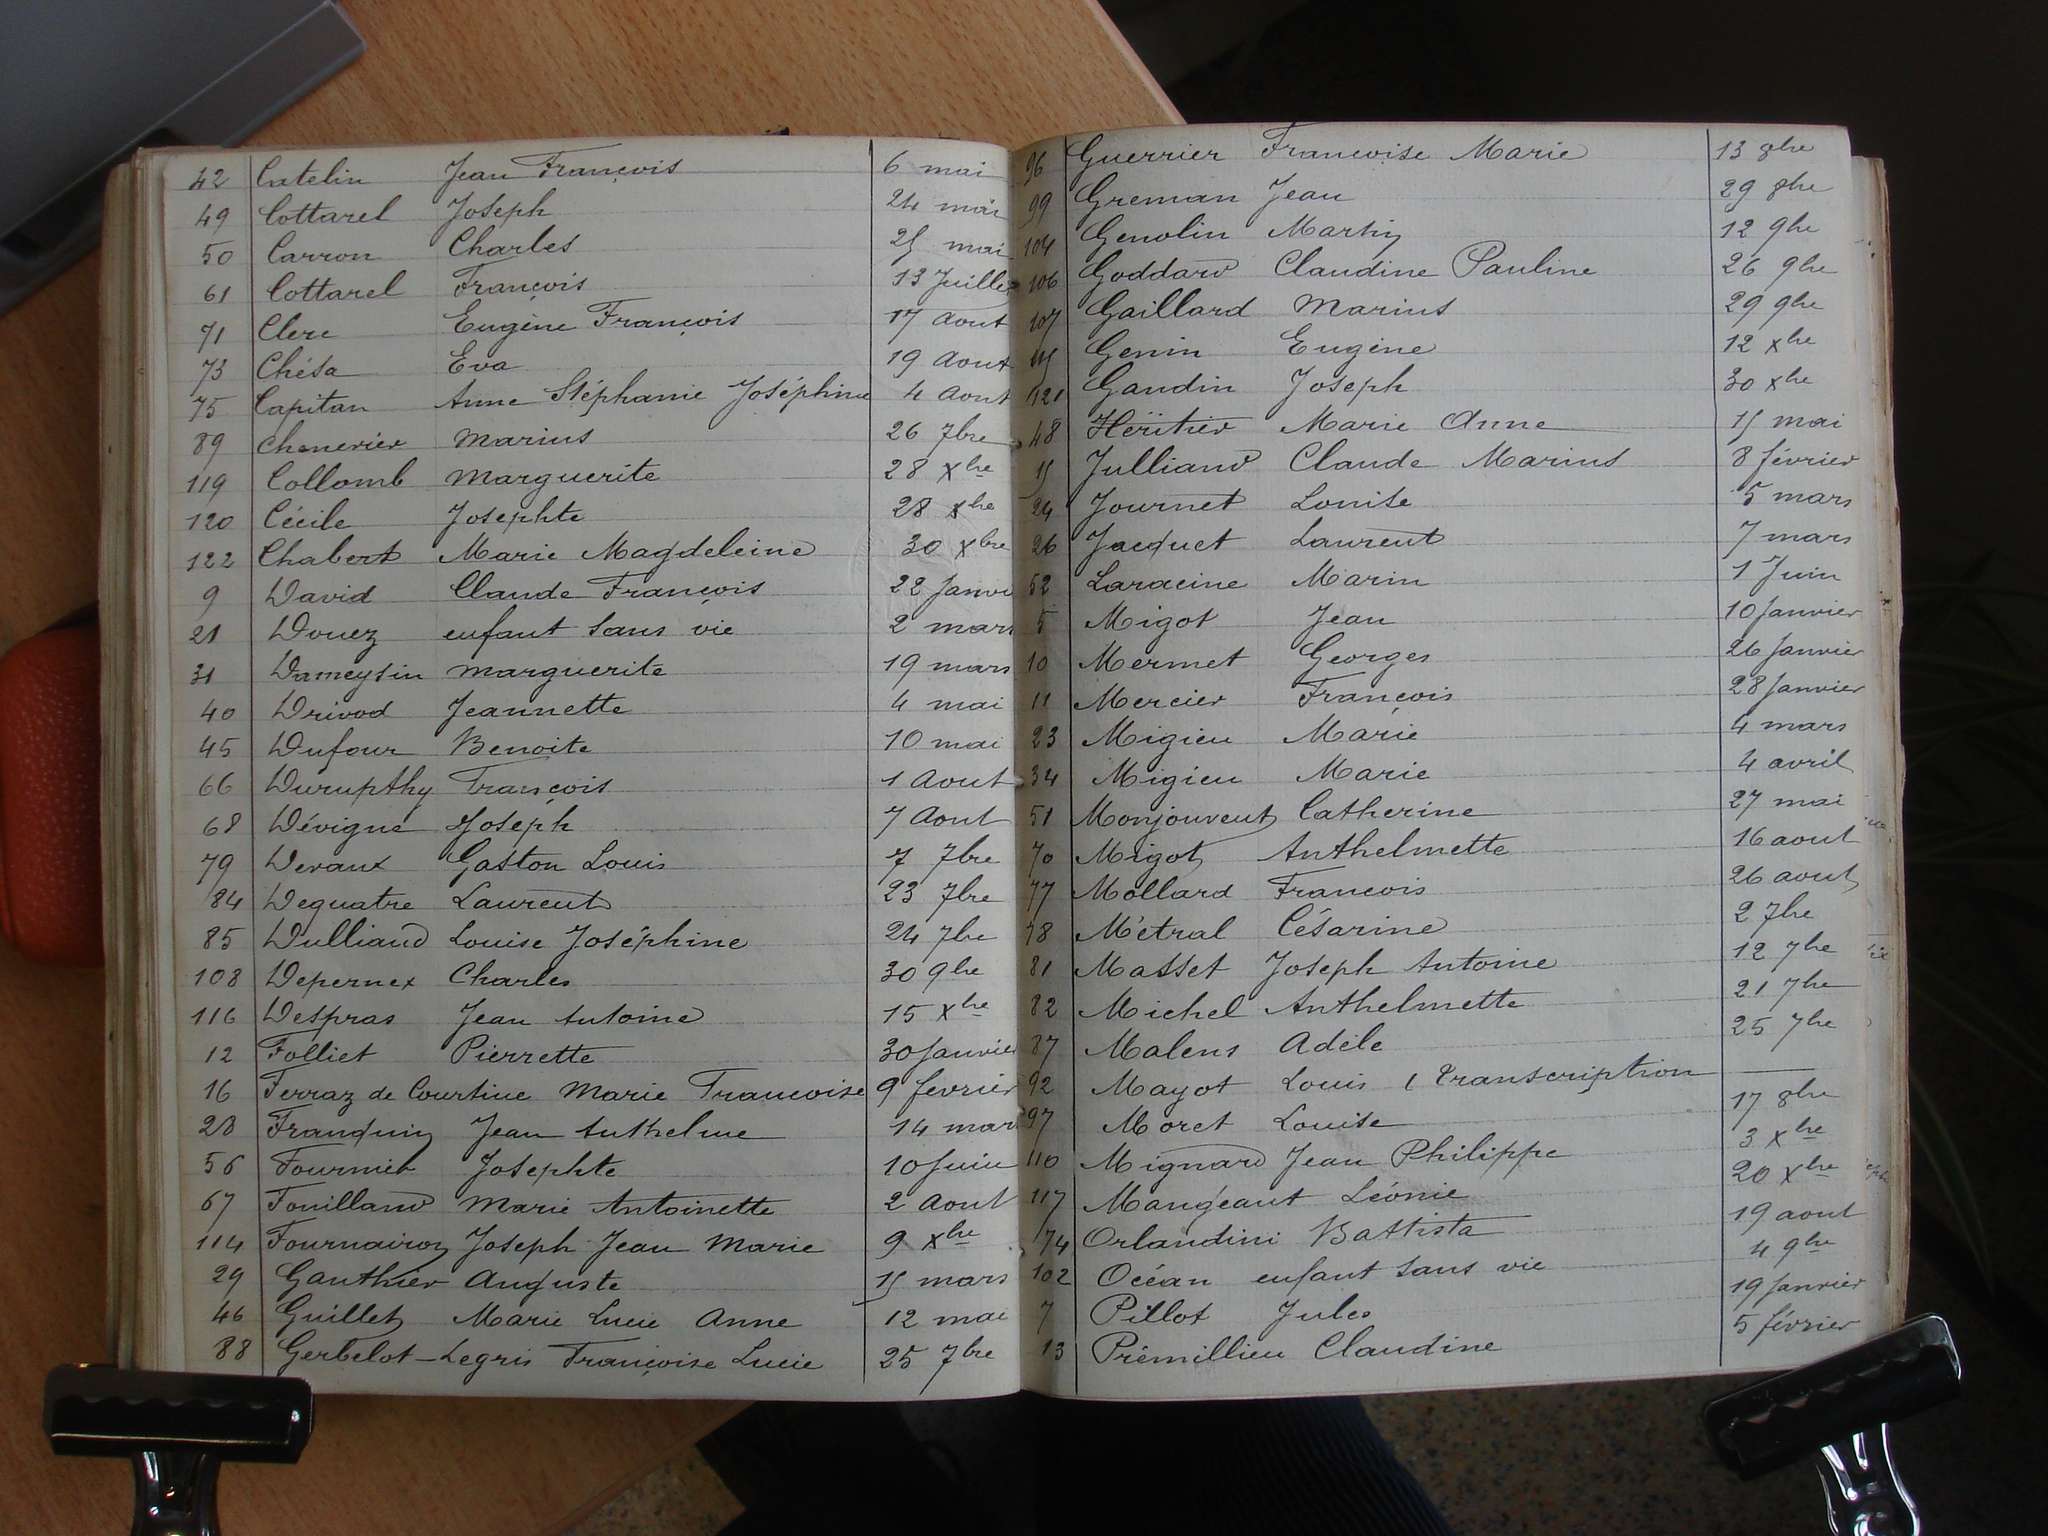 42 Catelin Jean François 6 mai
49 Cottarel Joseph 24 mai
50 Carron Charles 25 mai
61 Cottarel François 13 Juillet
71 Clerc Eugène François 17 Aout
73 Chésa Eva 19 Aout
75 Capitan Anne Stéphanie Joséphine 4 Aout
89 Chenevier Marius 26 7bre
119 Collomb Marguerite 28 Xbre
120 Cécile Josephte 28 Xbre
122 Chabert Marie Magdeleine 30 Xbre
9 David Claude François 22 Janvi
21 Douez enfant sans vie 2 mars
31 Dameysin Marguerite 19 mars
40 Drivod Jeannette 4 mai
45 Dufour Benoite 10 mai
66 Durupthy François 1 Aout
68 Dévigne Joseph 7 Aout
79 Devaux Gaston Louis 7 7bre
84 Dequatre Laurent 23 7bre
85 Dulliand Louise Joséphine 24 7bre
108 Depernex Charles 30 9bre
116 Despras Jean Antoine 15 Xbre
12 Folliet Pierrette 30 Janvier
16 Ferraz de Courtine Marie Francoise 9 fevrier
28 Franquin Jean Anthelme 14 mars
56 Fournier Josephte 10 Juin
67 Fouilland Marie Antoinette 2 Aout
114 Fournairoz Joseph Jean Marie 9 Xbre
29 Gauthier Auguste 15 mars
46 Guillet Marie Lucie Anne 12 mai
88 Gerbelot-Legris Françoise Lucie 25 7bre
96 Guerrier Francoise Marie 13 8bre
99 Greman Jean 29 8bre
104 Genolin Martin 12 9bre
106 Goddard Claudine Pauline 26 9bre
107 Gaillard Marius 29 9bre
115 Genin Eugène 12 Xbre
121 Gandin Joseph 30 Xbre
48 Héritier Marie Anne 15 mai
15 Julliand Claude Marius 8 février
24 Journet Louise 5 mars
26 Jacquet Laurent 7 mars
52 Laracine Marin 1 Juin
5 Migot Jean 10 Janvier
10 Mermet Georges 26 Janvier
11 Mercier François 28 Janvier
23 Migieu Marie 4 mars
34 Migieu Marie 4 avril
51 Monjouvent Catherine 27 mai
70 Migot Anthelmette 16 aout
77 Mollard Francois 26 aout
78 Métral Césarine 2 7bre
81 Masset Joseph Antoine 12 7bre
82 Michel Anthelmette 21 7bre
87 Malens Adèle 25 7bre
92 Mayot Louis ( transcription —
97 Moret Louise 17 8bre
110 Mignard Jean Philippe 3 Xbre
117 Mangeant Léonie 20 Xbre
74 Orlandini Battista 19 aout
102 Océan enfant sans vie 4 9bre
7 Pillot Jules 19 Janvier
13 Prémillieu Claudine 5 février